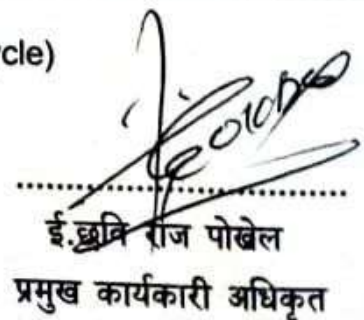 cle)
ई.छवि राज पोखेल
प्रमुख कार्यकारी अधिकृत